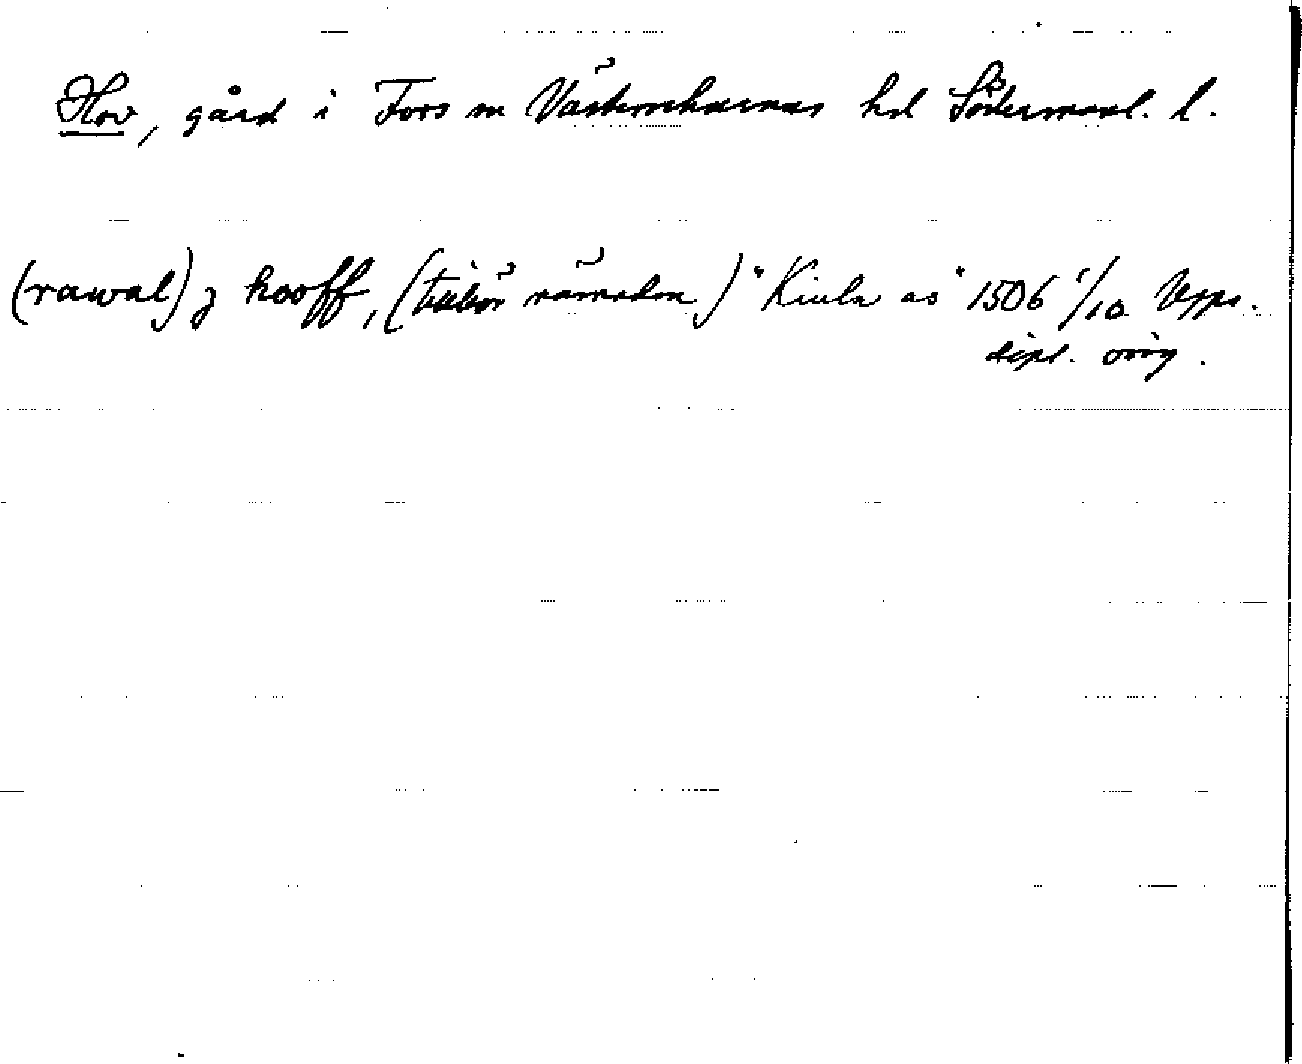 Hov, gård i Fors sn Västerrekarnas hd Södermanl. l.
(rawal) j hooff, (tillhör nämnden) "Kiula as" 1506 1/10 Upps.
dipl. orig.